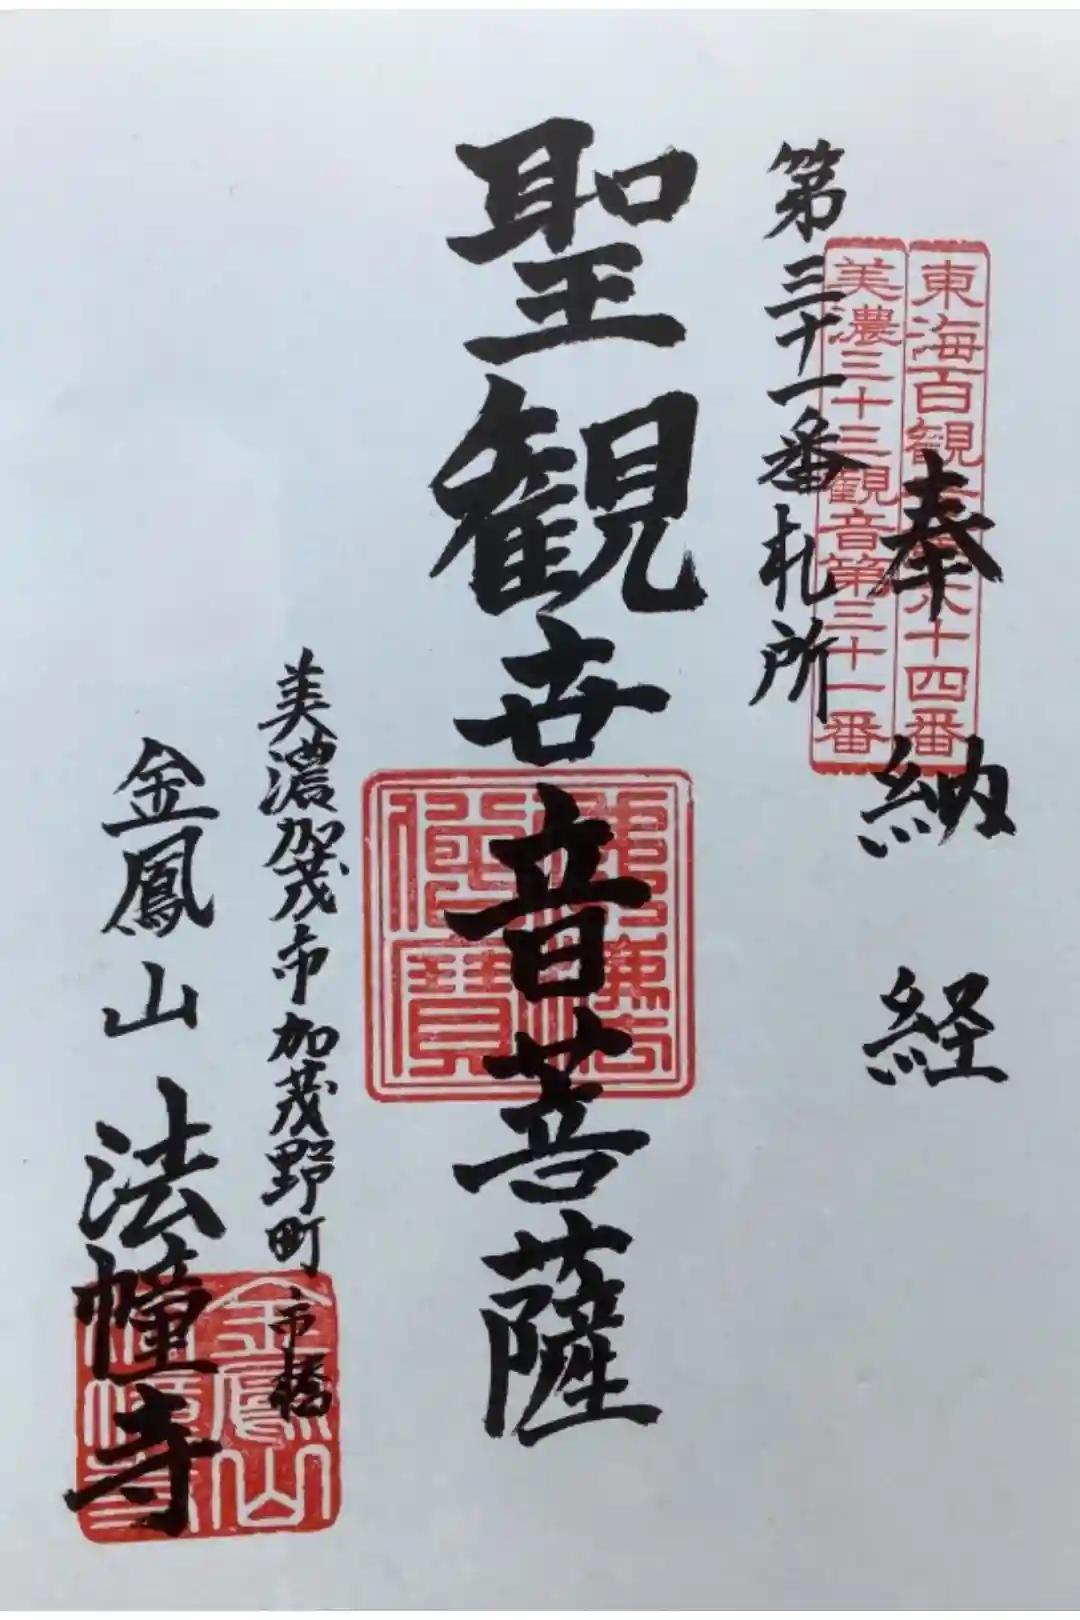 奉納経
東海百観 十四番
美濃三十三観音第三十一番
第三十一番札所
聖観世音菩薩
美濃加茂市加茂野町市橋
金鳳山法幢寺
金鳳山
法幢寺